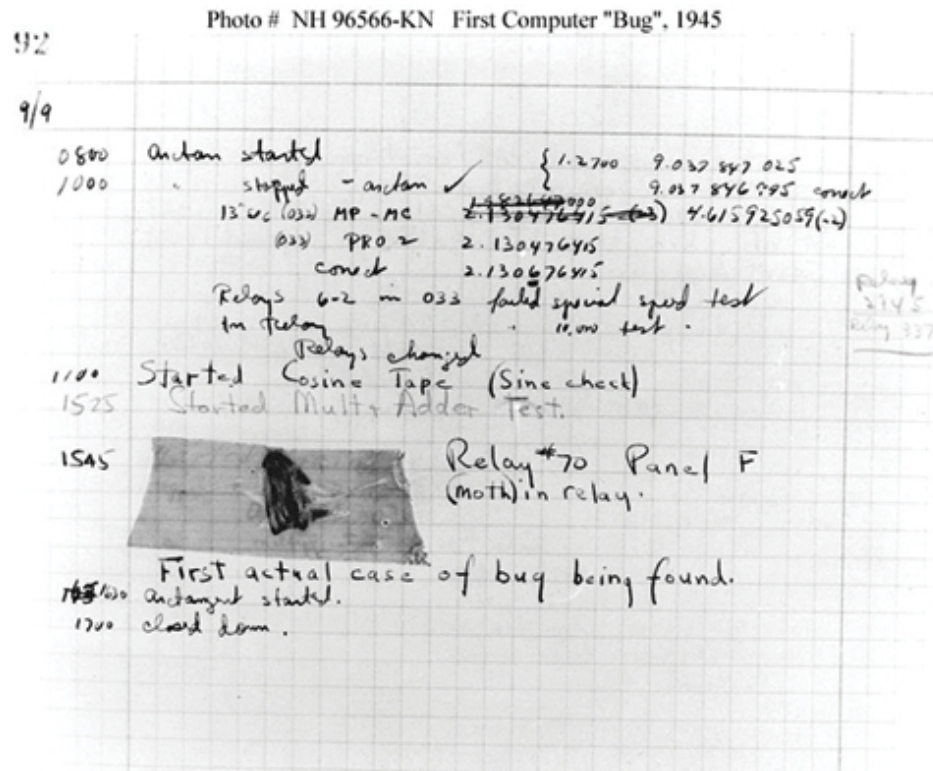 Photo # NH 96566-KN First Computer "Bug", 1945
92
9/9
0800 antan started { 1.2700 9.037 847 025
1000 " stopped - antan ✓ 9.037 846 995 conect
13"uc (032) MP - MC 2.130476415 4.615925059(-2)
(033) PRO 2 2.130476415
conect 2.130676415
Relays 6-2 in 033 failed special speed test
In Relay " 10,000 test .
Relay
2145
Relay 337
Relays changed
1100 Started Cosine Tape (Sine check)
1525 Started Mult + Adder Test.
1545 Relay #70 Panel F
(moth) in relay.
First actual case of bug being found.
1630 antangent started.
1700 closed down.